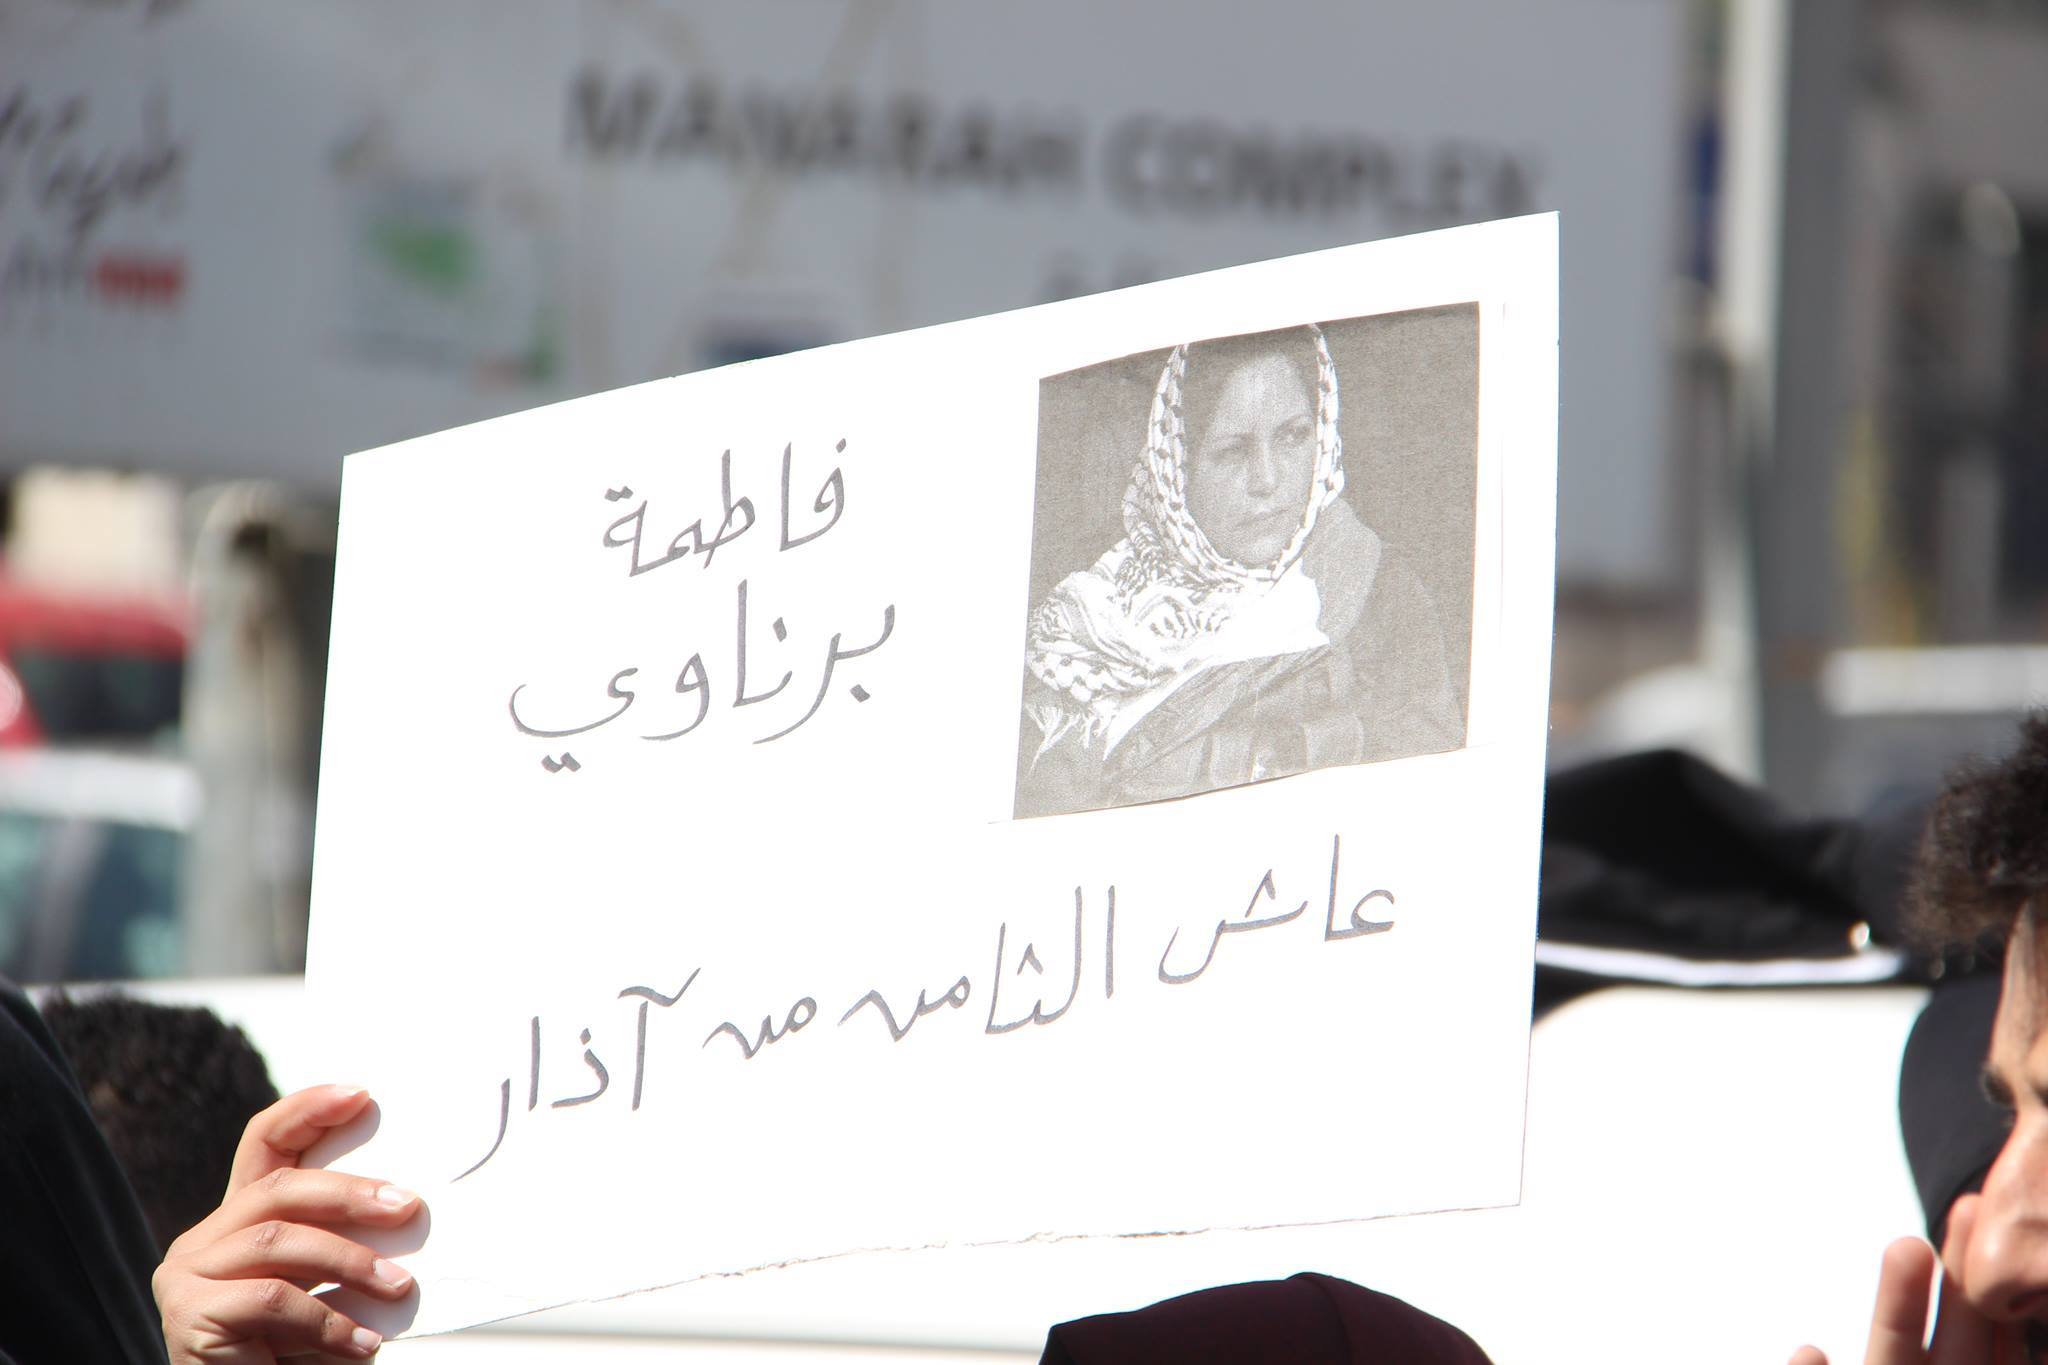 MANARAH COMPLEX
فاطمة
برناوي
عاش الثامن من آذار